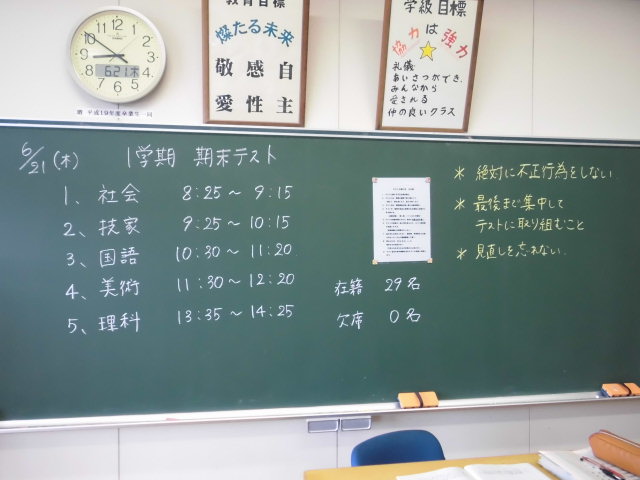 教育目標
燦たる未来
敬 感 自
愛 性 主
学級目標
は
協力 強力
礼儀
あいさつができ、
みんなから
愛される
仲の良いクラス
6.21 木
贈 平成19年度卒業生一同
6/21 (木) 1学期 期末テスト
1、社会 8:25～9:15
2、技家 9:25～10:15
3、国語 10:30～11:20
4、美術 11:30～12:20
5、理科 13:35～14:25
在籍 29名
欠席 0名
* 絶対に不正行為をしない
* 最後まで集中して
テストに取り組むこと
* 見直しを忘れない